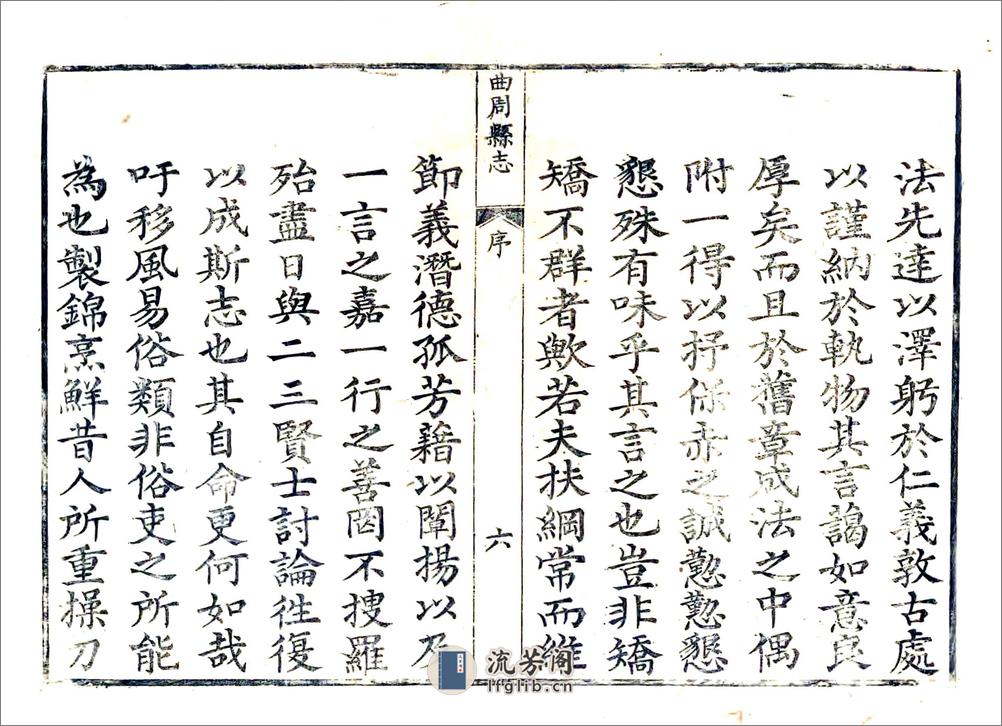 法先達以澤躬於仁義敦古處
以謹納於軌物其言藹如意良
厚矣而且於舊章成法之中偶
附一得以抒保赤之誠懃懃懇
懇殊有味乎其言之也豈非矯
矯不群者歟若夫扶綱常而維
曲周縣志
序
六
節義潛德孤芳藉以闡揚以及
一言之嘉一行之善罔不搜羅
殆盡日與二三賢士討論往復
以成斯志也其自命更何如哉
吁移風易俗類非俗吏之所能
為也製錦烹鮮昔人所重操刀
流芳阁
lfglib.cn